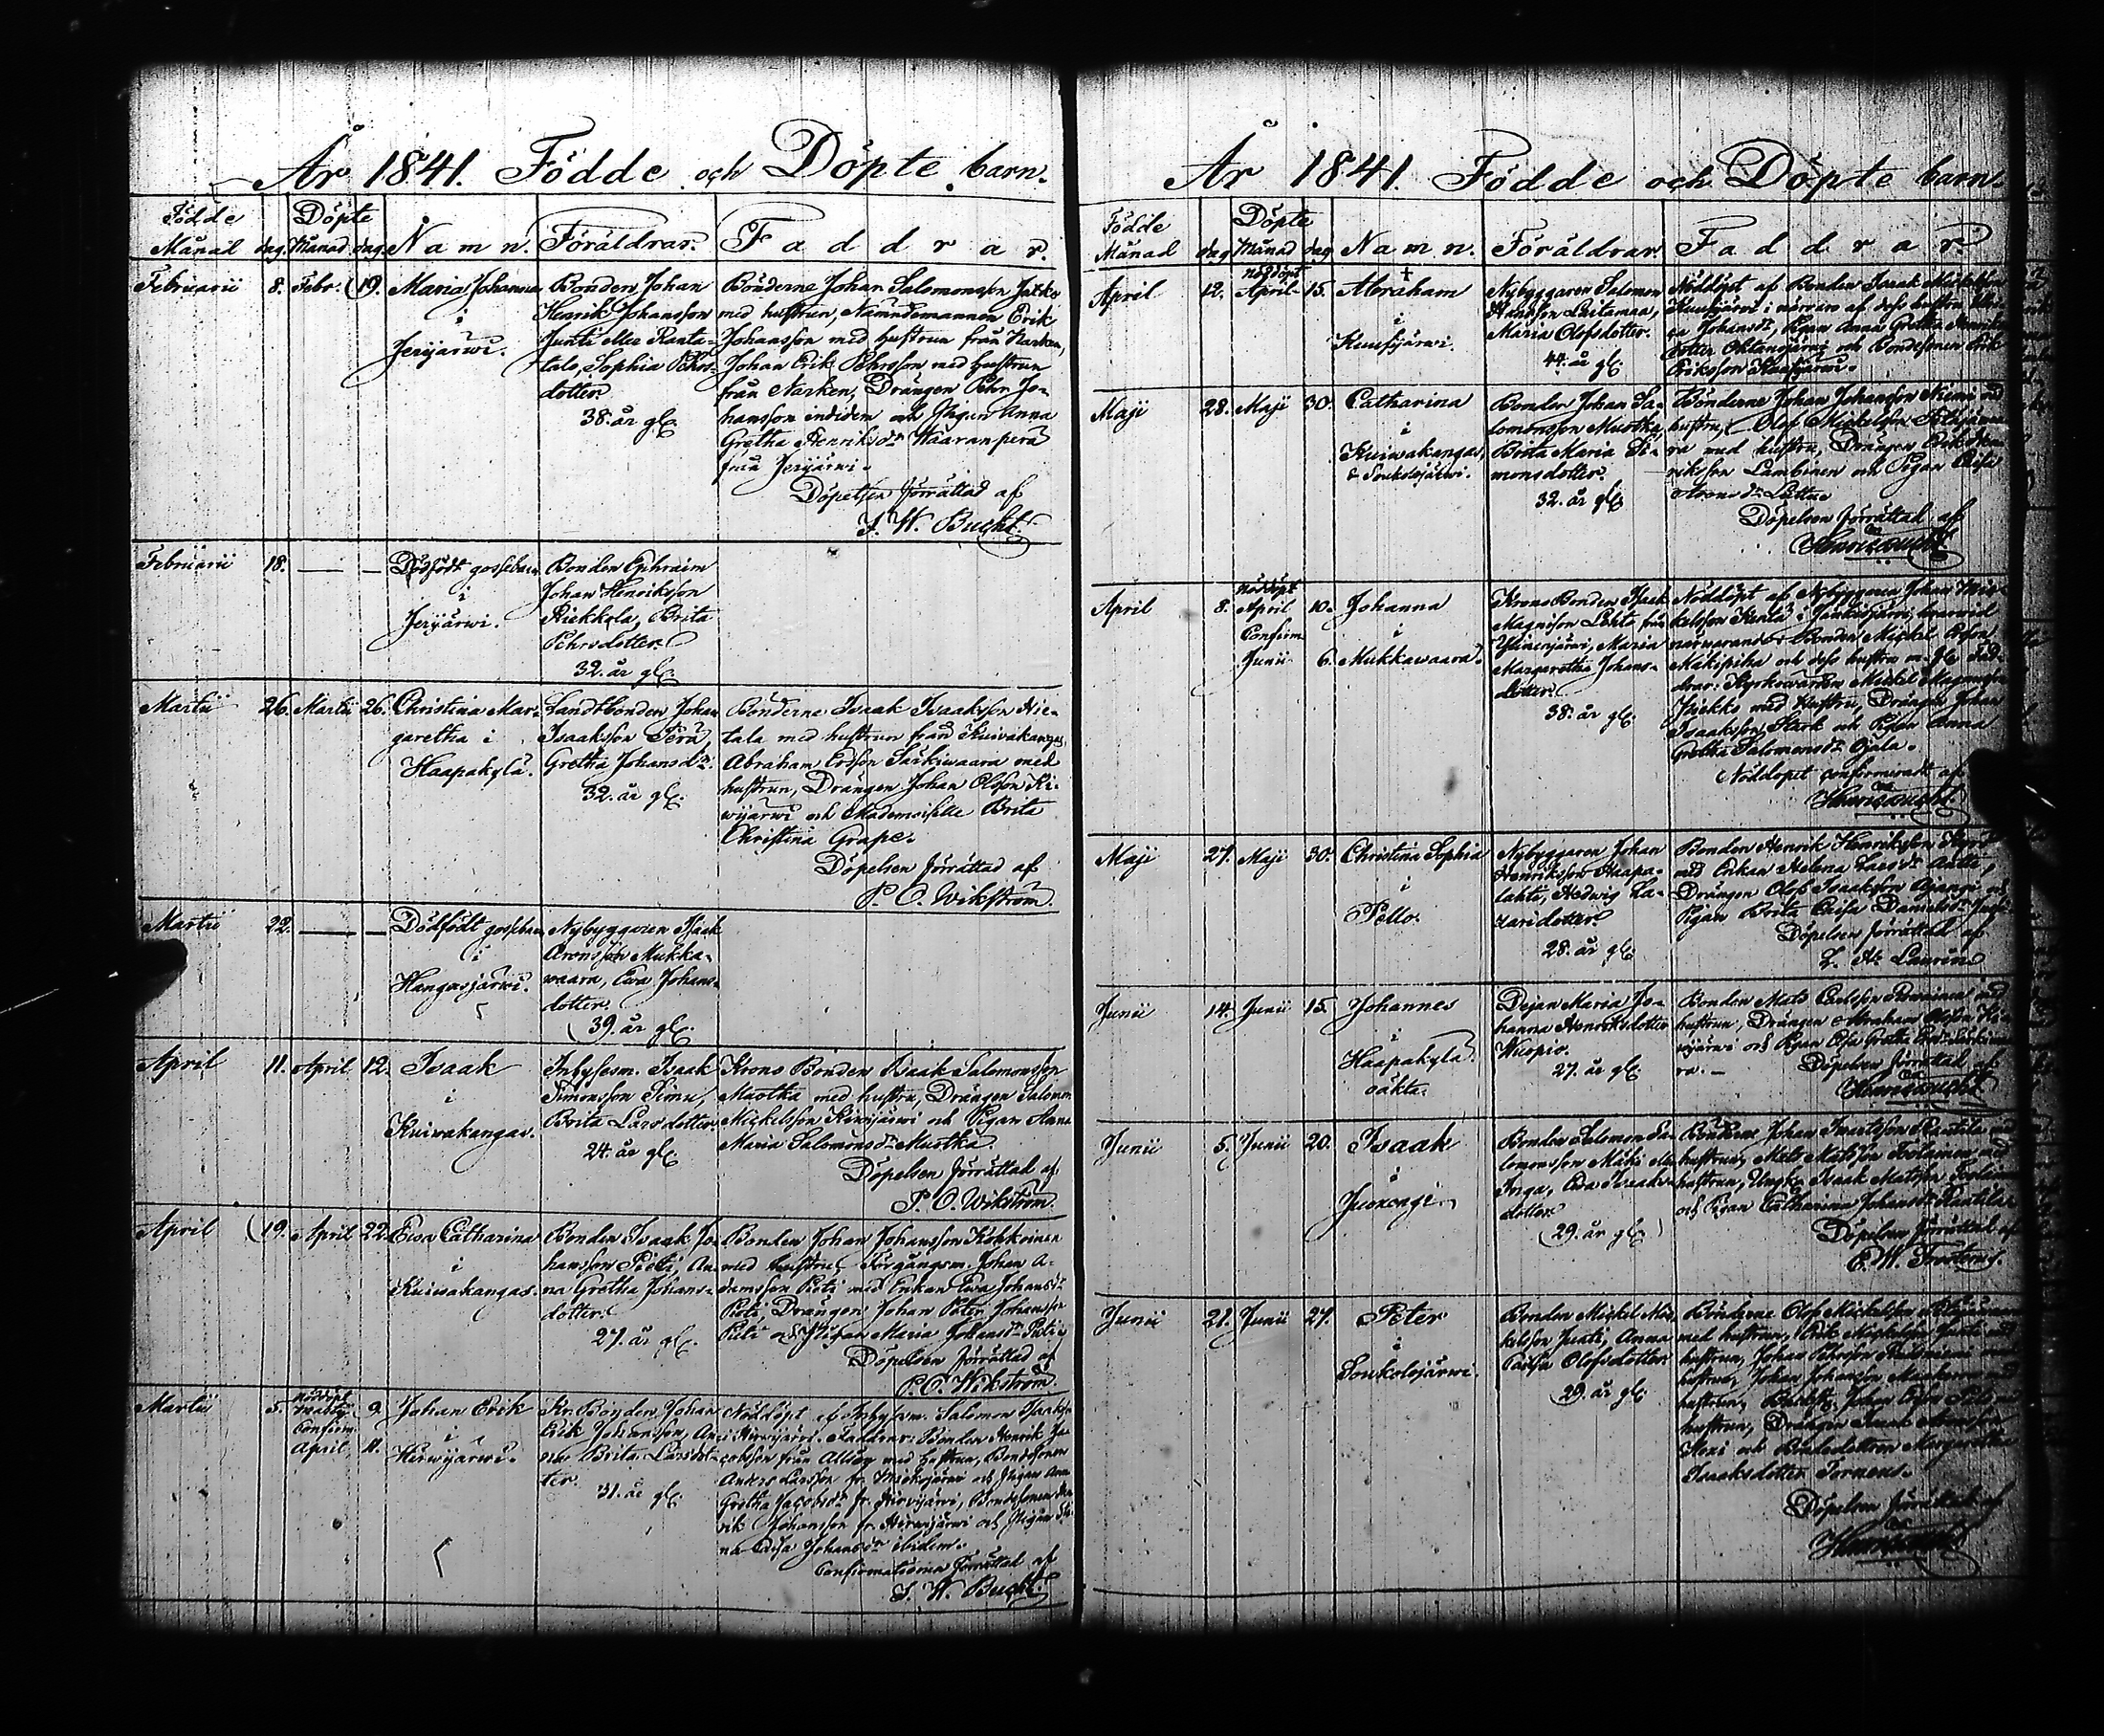 År 1841. Födde och Döpte barn.
Födde Döpte
Månad dag. Månad dag. Namn. Föräldrar. Faddrar.
Februarii 8. Febr. 19. Maria Johanna
i
Jerijärwi.
Bonden Johan
Henrik Johansson
Junti eller Ranta-
talo, Sophia Pehrs-
dotter.
38. år gl.
Bönderne Johan Salomonsson
med hustrun, Nämndemannen Erik
Johansson med hustrun från Narken,
Johan Erik Pehrsson med hustrun
från Narken, Drängen Pehr Jo-
hansson ibidem och Pigan Anna
Gretha Henriksdr Waaranperä
från Jerijärwi.
Döpelsen förrättad af
J. W. Bucht.
Februarii 18. — — Dödfödt gossebarn
i
Jerijärwi.
Bonden Ephraim
Johan Henriksson
Riekkola, Brita
Pehrsdotter.
32. år gl.
Martii 26. Martii 26. Christina Mar-
garetha i
Haapakylä.
Landtbonden Johan
Isaaksson Perä,
Gretha Johansdr.
32. år gl.
Bönderne Isaak Isaaksson Hie-
tala med hustrun från Kuivakangas,
Abraham Ersson Särkiwaara med
hustrun, Drängen Johan Olsson Ki-
wijärwi och Mademoiselle Brita
Christina Grape.
Döpelsen förrättad af
P. O. Wikström.
Martii 22. — — Dödfödt gossebarn
i
Hangasjärwi.
Nybyggaren Isaak
Aronsson Mukka-
waara, Ewa Johans-
dotter.
39. år gl.
April 11. April 12. Isaak
i
Kuiwakangas.
Inhysesm. Isaak
Simonsson Simu,
Brita Larsdotter.
24. år gl.
Krono Bonden Isaak Salomonsson
Muotka med hustru, Drängen Salomon
Mickelsson Kiwijärwi och Pigan Anna
Maria Salomonsdr Muotka
Döpelsen förrättad af
P. O. Wikström.
April 19. April 22. Ewa Catharina
i
Kuiwakangas.
Bonden Isaak Jo-
hansson Pieti, An-
na Gretha Johans-
dotter.
27. år gl.
Bonden Johan Johansson
med hustru, Förgångsm. Johan A-
damsson Pieti med Enkan Ewa Johansdr
Pieti, Drängen Johan Peter Johansson
Pieti och Pigan Maria Johansdr Pieti
Döpelsen förrättad af
P. O. Wikström.
Martii 5. Nöddöpt
Martii 9.
Confirm.
April 11.
Johan Erik
i
Hirwijärwi.
Kr. Bonden Johan
Erik Johansson, An-
na Brita Larsdot-
ter.
31. år gl.
Nöddöpt af Inhysesm. Salomon Isaksson
i Hirwijärwi. Faddrar: Bonden Henrik Ja-
cobsson från med hustrun, Bondesonen
Anders Larsson fr. och Pigan Anna
Gretha Jacobsdr fr. Hirwijärwi, Bondesonen Hen-
rik Johansson fr. Hirwijärwi och Pigan
na Caisa Johansdr ibidem.
Confirmationen förrättad af
J. W. Bucht.
År 1841. Födde och Döpte barn.
Födde Döpte
Månad dag Månad dag Namn. Föräldrar. Faddrar.
April 12. nöddöpt
April 15. Abraham
i
Kuusijärwi.
Nybyggaren Salomon
Hansson Luitamaa,
Maria Olofsdotter.
44. år gl.
Nöddöpt af Bonden Isaak
Kuusijärwi i närvaro af dess hustru
Johansdr, Pigan Anna Gretha Henriks-
dotter och Bondesonen Erik
Eriksson Kuusijärwi.
Maji 28. Maji 30. Catharina
i
Kuiwakangas,
Soukolojärwi.
Bonden Johan Sa-
lomonsson Muotka,
Brita Maria Si-
monsdotter.
32. år gl.
Bönderne Johan Johansson Niemi med
hustru, Olof Mickelsson
ra med hustru, Drängen Erik Hen-
riksson Lambinen och Pigan Caisa
Döpelsen förrättad af
April 8. nöddöpt
April 10.
Confirm.
Junii 6.
Johanna
i
Mukkawaara.
Krono Bonden Isaak
Magnisson Lehto från
Ylinenjärwi, Maria
Margaretha Johans-
dotter.
38. år gl.
Nöddöpt af Nybyggaren Johan Mic-
kelsson Kenta i hwarwid
närwarande Bonden Mickel Olsson
Mäkipiha och dess hustru m. fl. Fad-
drar: Kyrkowärden Mickel Magnusson
med hustru, Drängen Johan
Isaaksson Stark och Pigan Anna
Gretha Salomonsdr Ojala.
Nöddopet confirmeradt af
Maji 27. Maji 30. Christina Sophia
i
Pello.
Nybyggaren Johan
Henriksson Haapa-
lahti, Hedwig La-
zaridotter.
28. år gl.
Bonden Henrik Henriksson
med Enkan Helena Larsdr
Drängen Olof Isaaksson Ajangi och
Pigan Brita Caisa Danielsdr
Döpelsen förrättad af
L. A. Laurin.
Junii 14. Junii 15. Johannes
i
Haapakylä
oäkta.
Dejan Maria Jo-
hanna Henriksdotter
Wuopio.
27. år gl.
Bonden Mats Carlsson med
hustrun, Drängen Abraham Olsson Ki-
wijärwi och Pigan Gretha
ra. — Döpelsen förrättad af
Junii 5. Junii 20. Isaak
i
Juoxengi.
Bonden Salomon Sa-
lomonsson Mäki eller
Inga, Ewa Isaaks-
dotter
29. år gl.
Bönderne Johan Isaaksson Rautila med
hustrun, Mats Matsson med
hustrun, Ungk. Isaak Matsson
och Pigan Catharina Johansdr Rautila
Döpelsen förrättad af
Junii 21. Junii 27. Peter
i
Soukolojärwi.
Bonden Mickel Mic-
kelsson Juati, Anna
Caisa Olofsdotter
29. år gl.
Bönderne Olof Mickelsson
med hustrun, Erik Mickelsson Juati med
hustrun, Johan Pehrsson
hustrun, Johan Johansson
hustrun,
hustrun, Drängen Isaak
och Bondedottren Margaretha
Isaaksdotter Torneus.
Döpelsen förrättad af